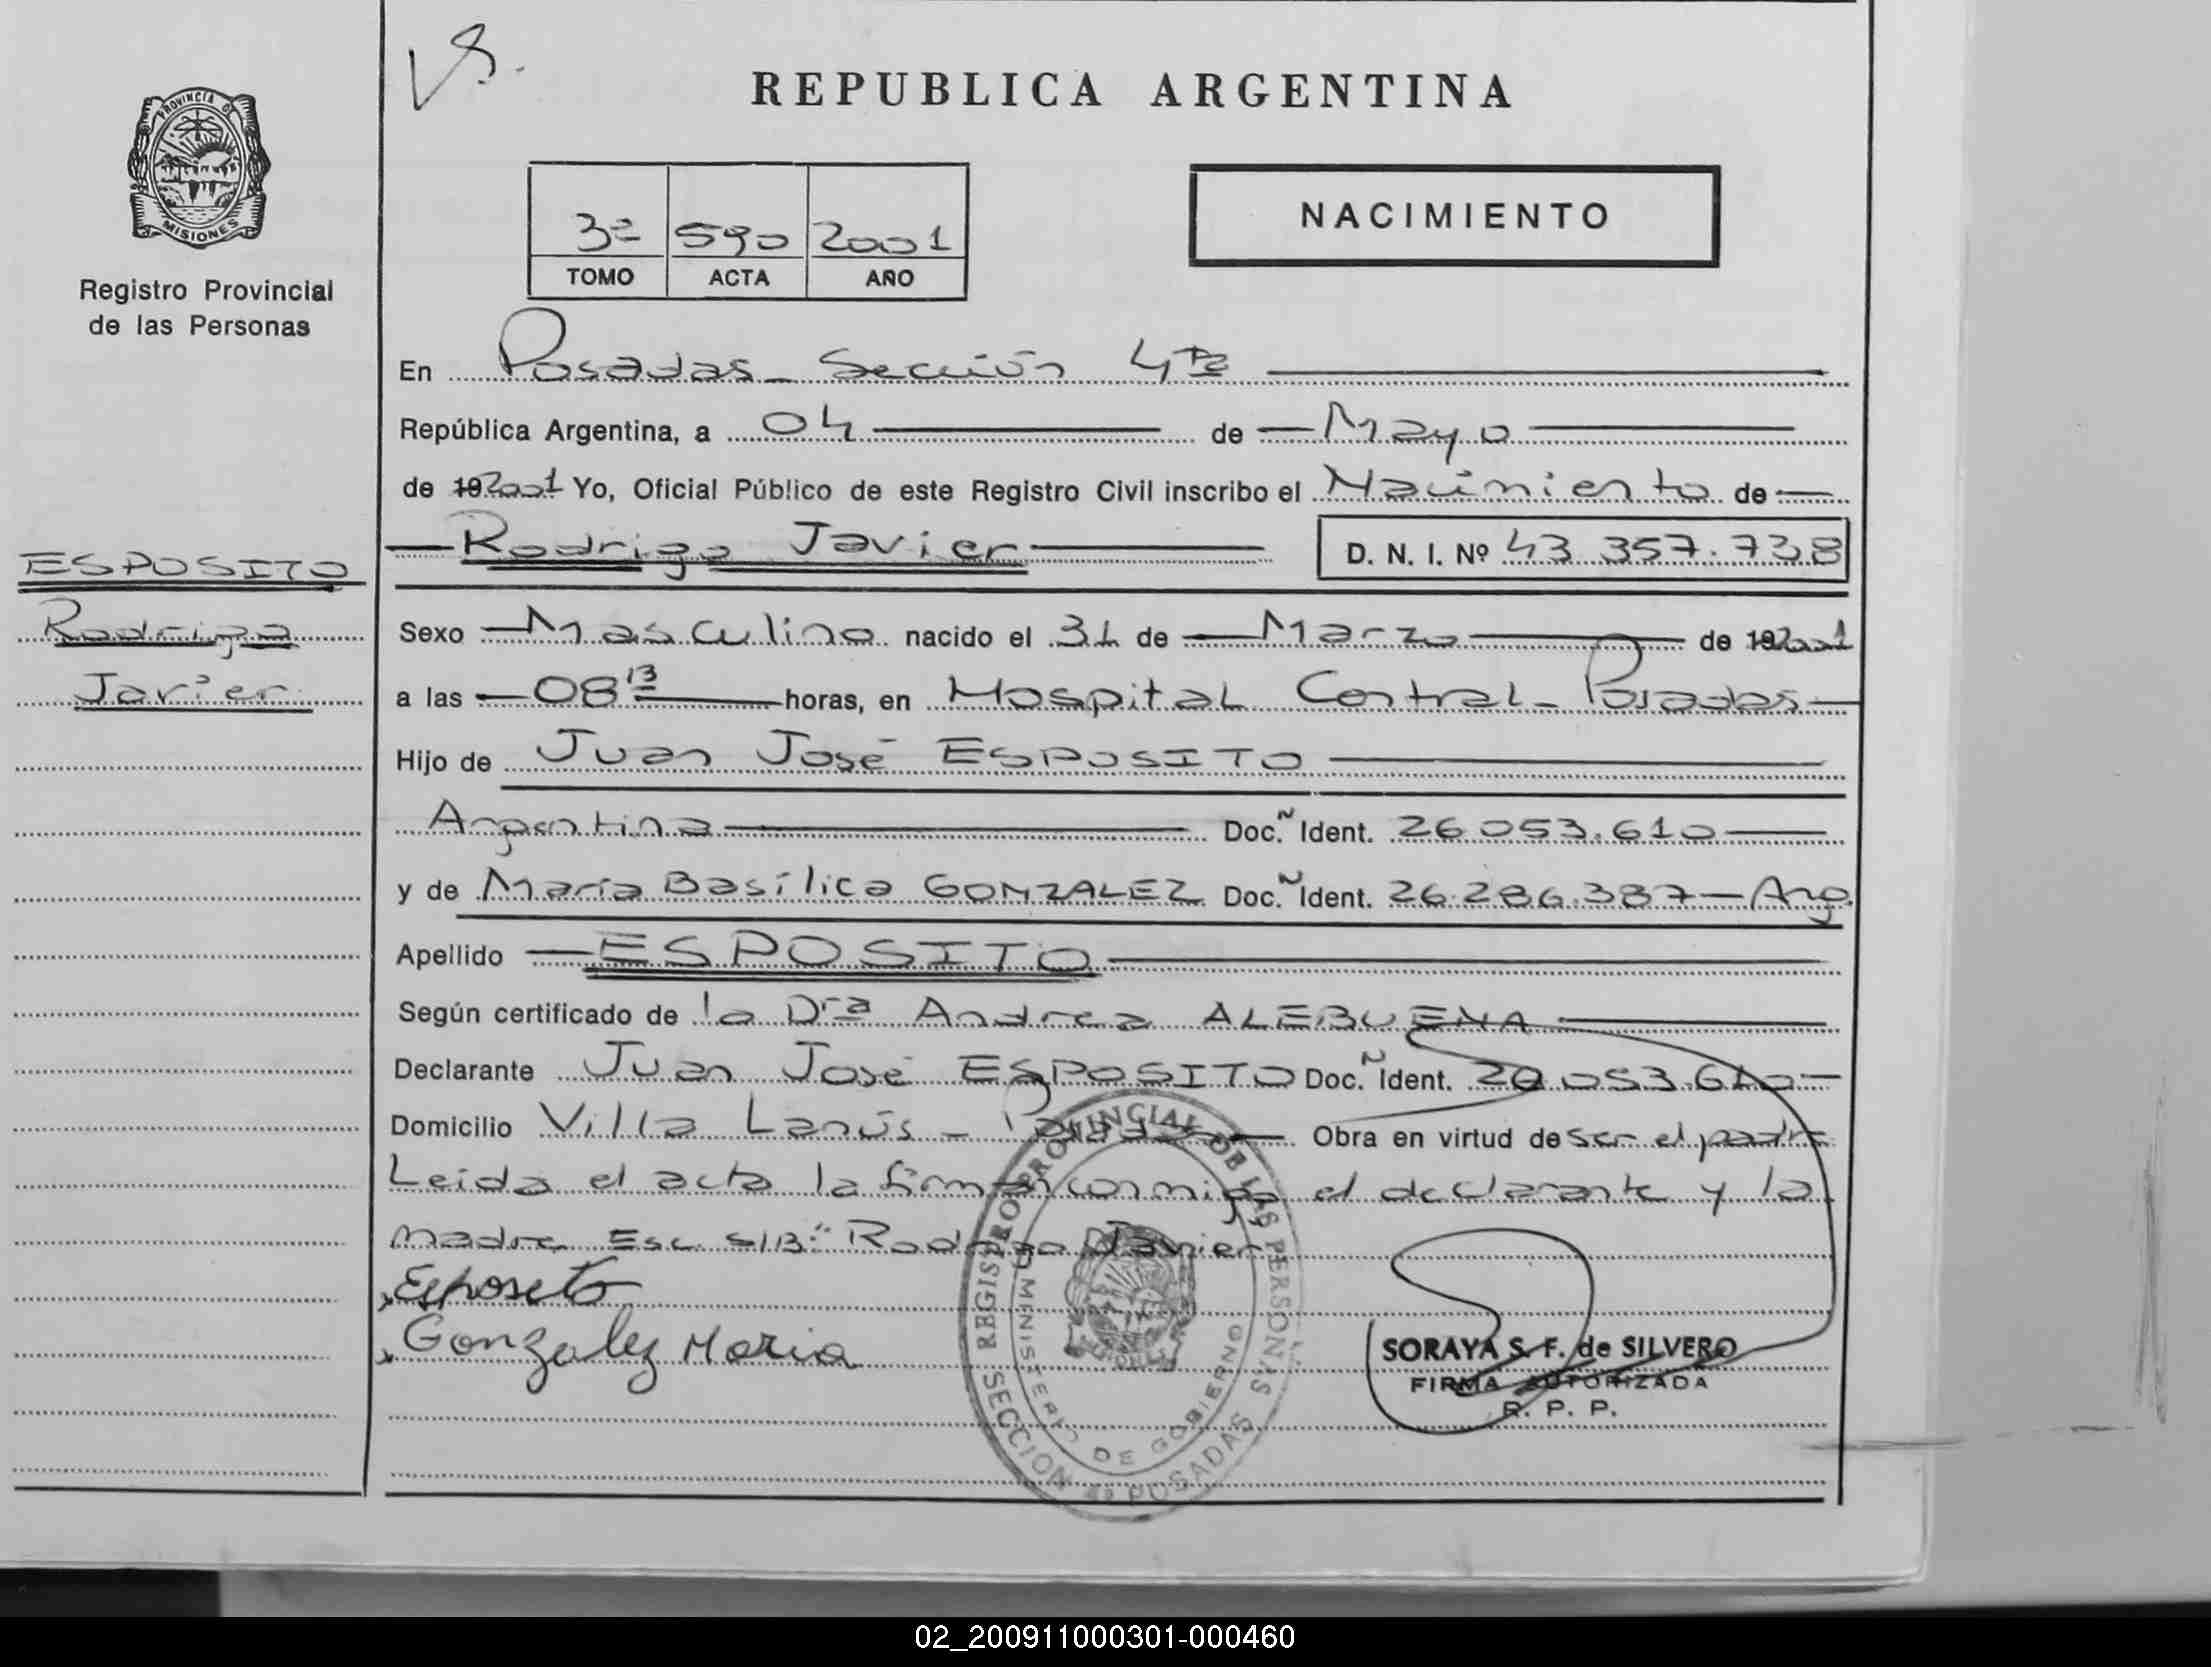 PROVINCIA DE
MISIONES
Registro Provincial
de las Personas
ESPOSITO
Rodrigo
Javier
REPUBLICA ARGENTINA
3º 590 2001
TOMO ACTA AÑO
NACIMIENTO
En Posadas - Sección 4ta
República Argentina, a 04 de Mayo
de 192001 Yo, Oficial Público de este Registro Civil inscribo el Nacimiento de
Rodrigo Javier D. N. I. Nº 43.357.738
Sexo Masculino nacido el 31 de Marzo de 192001
a las 08 13 horas, en Hospital Central - Posadas
Hijo de Juan José ESPOSITO
Argentina Doc. Ñ Ident. 26.053.610
y de María Basílica GONZALEZ Doc. Ñ Ident. 26.286.387 - Arg.
Apellido ESPOSITO
Según certificado de la Dra Andrea ALEBUENA
Declarante Juan José ESPOSITO Doc. Ñ Ident. 26.053.610
Domicilio Villa Lanús - Posadas Obra en virtud de ser el padre
Leida el acta la firman conmigo el declarante y la
madre Esc. S/B: Rodrigo Javier
Esposito
Gonzalez Maria
REGISTRO PROVINCIAL DE LAS PERSONAS
MINISTERIO DE GOBIERNO
SECCION 4a POSADAS
SORAYA S. F. de SILVERO
FIRMA AUTORIZADA
R. P. P.
02_200911000301-000460